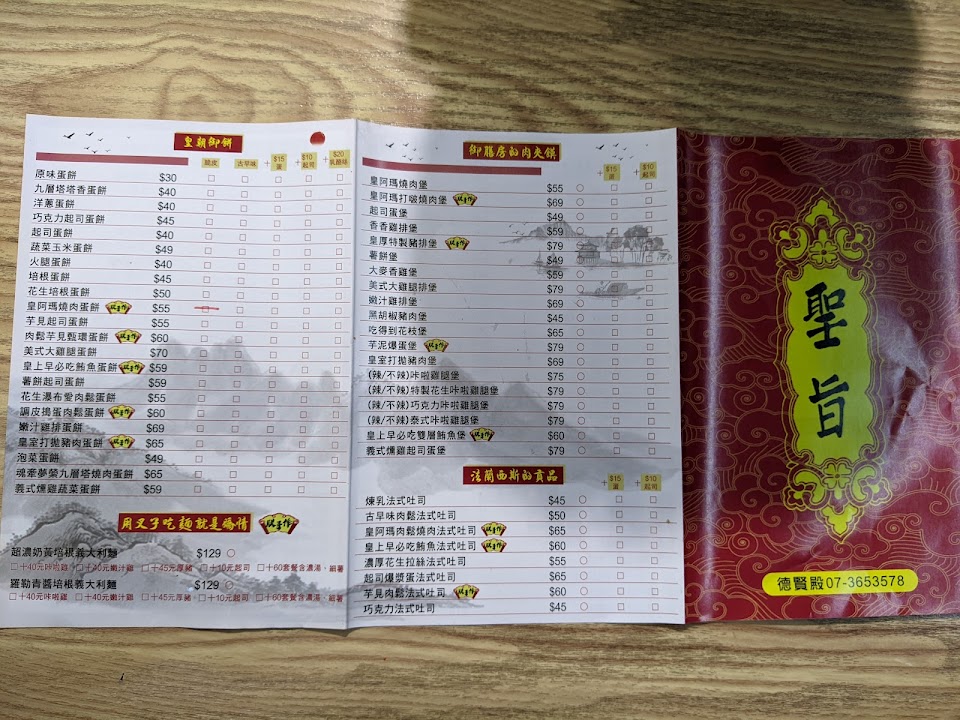 皇朝御餅
脆皮 古早味 +$15蛋 +$10起司 +$20乳酪絲
原味蛋餅 $30
九層塔塔香蛋餅 $40
洋蔥蛋餅 $40
巧克力起司蛋餅 $45
起司蛋餅 $40
蔬菜玉米蛋餅 $49
火腿蛋餅 $40
培根蛋餅 $45
花生培根蛋餅 $50
皇阿瑪燒肉蛋餅 以手作 $55
芋見起司蛋餅 $55
肉鬆芋見甄環蛋餅 以手作 $60
美式大雞腿蛋餅 $70
皇上早必吃鮪魚蛋餅 以手作 $59
薯餅起司蛋餅 $59
花生瀑布愛肉鬆蛋餅 $55
調皮搗蛋肉鬆蛋餅 以手作 $60
嫩汁雞排蛋餅 $69
皇室打拋豬肉蛋餅 以手作 $65
泡菜蛋餅 $49
魂牽夢縈九層塔燒肉蛋餅 $65
義式燻雞蔬菜蛋餅 $59
用叉子吃麵就是矯情 以手作
超濃奶黃培根義大利麵 $129
+40元咔啦雞 +40元嫩汁雞 +45元厚豬 +10元起司 +60套餐含濃湯、細薯
羅勒青醬培根義大利麵 $129
+40元咔啦雞 +40元嫩汁雞 +45元厚豬 +10元起司 +60套餐含濃湯、細薯
御膳房的肉夾饃
+$15蛋 +$10起司
皇阿瑪燒肉堡 $55
皇阿瑪打啵燒肉堡 以手作 $69
起司蛋堡 $49
香香雞排堡 $59
皇厚特製豬排堡 以手作 $79
薯餅堡 $49
大麥香雞堡 $59
美式大雞腿堡 $79
嫩汁雞排堡 $69
黑胡椒豬肉堡 $45
吃得到花枝堡 $65
芋泥爆蛋堡 以手作 $79
皇室打拋豬肉堡 $69
(辣/不辣)咔啦雞腿堡 $75
(辣/不辣)特製花生咔啦雞腿堡 $79
(辣/不辣)巧克力咔啦雞腿堡 $79
(辣/不辣)泰式咔啦雞腿堡 $79
皇上早必吃雙層鮪魚堡 以手作 $60
義式燻雞起司蛋堡 $79
法蘭西斯的貢品
+$15蛋 +$10起司
煉乳法式吐司 $45
古早味肉鬆法式吐司 $50
皇阿瑪燒肉法式吐司 以手作 $65
皇上早必吃鮪魚法式吐司 以手作 $60
濃厚花生拉絲法式吐司 $55
起司爆漿蛋法式吐司 $65
芋見肉鬆法式吐司 以手作 $60
巧克力法式吐司 $45
聖旨
德賢殿07-3653578